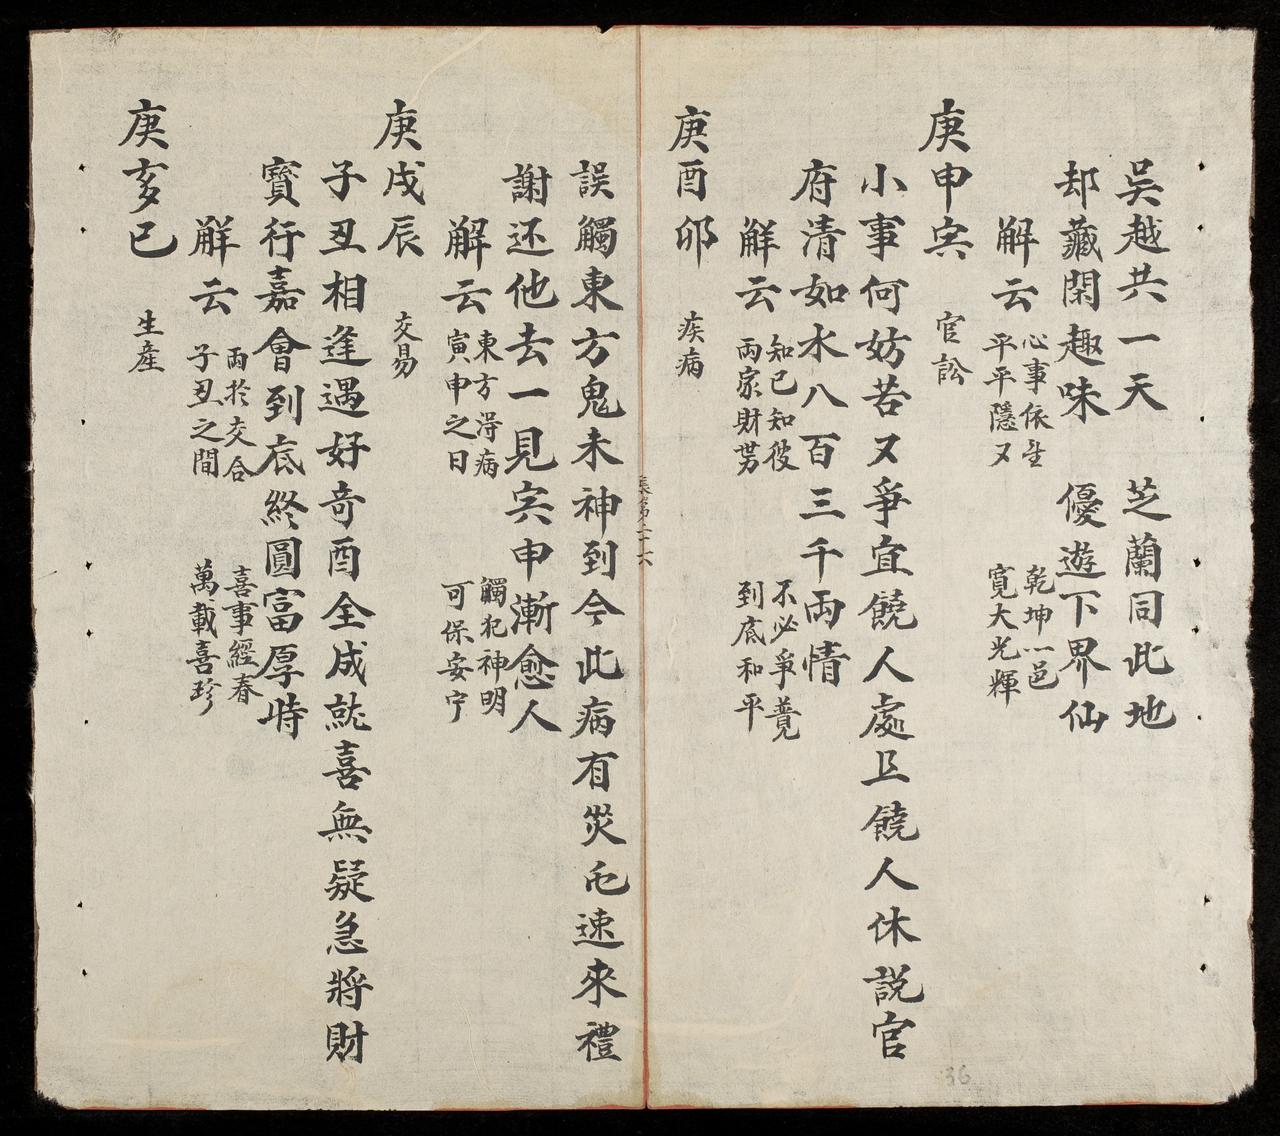 吴越共一天　芝蘭同此地
却藏閑趣味　優遊下界仙
解云　心事依　乾坤一邑
平平隱又　寛大光輝
庚申寅　官訟
小事何妨苦又爭宜饒人處且饒人休説官
府清如水八百三千两情
解云　知已知彼　不必爭竟
两家財势　到底和平
庚酉卯　疾病
誤觸東方鬼未神到今此病有災厄速來禮
謝还他去一見寅申漸愈人
解云　東方淂病　觸犯神明
寅申之日　可保安宁
庚戌辰　交易
子丑相逢遇好奇酉全成就喜無疑急將財
寳行嘉會到底終圓富厚時
解云　两於交合　喜事經春
子丑之間　萬載喜珍
庚亥巳　生産
張第三十六
36